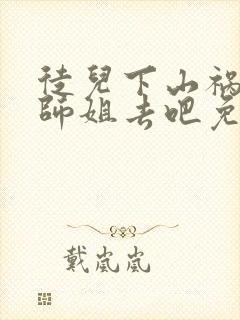 徒兒下山禍
師姐去吧免
戴嵐嵐